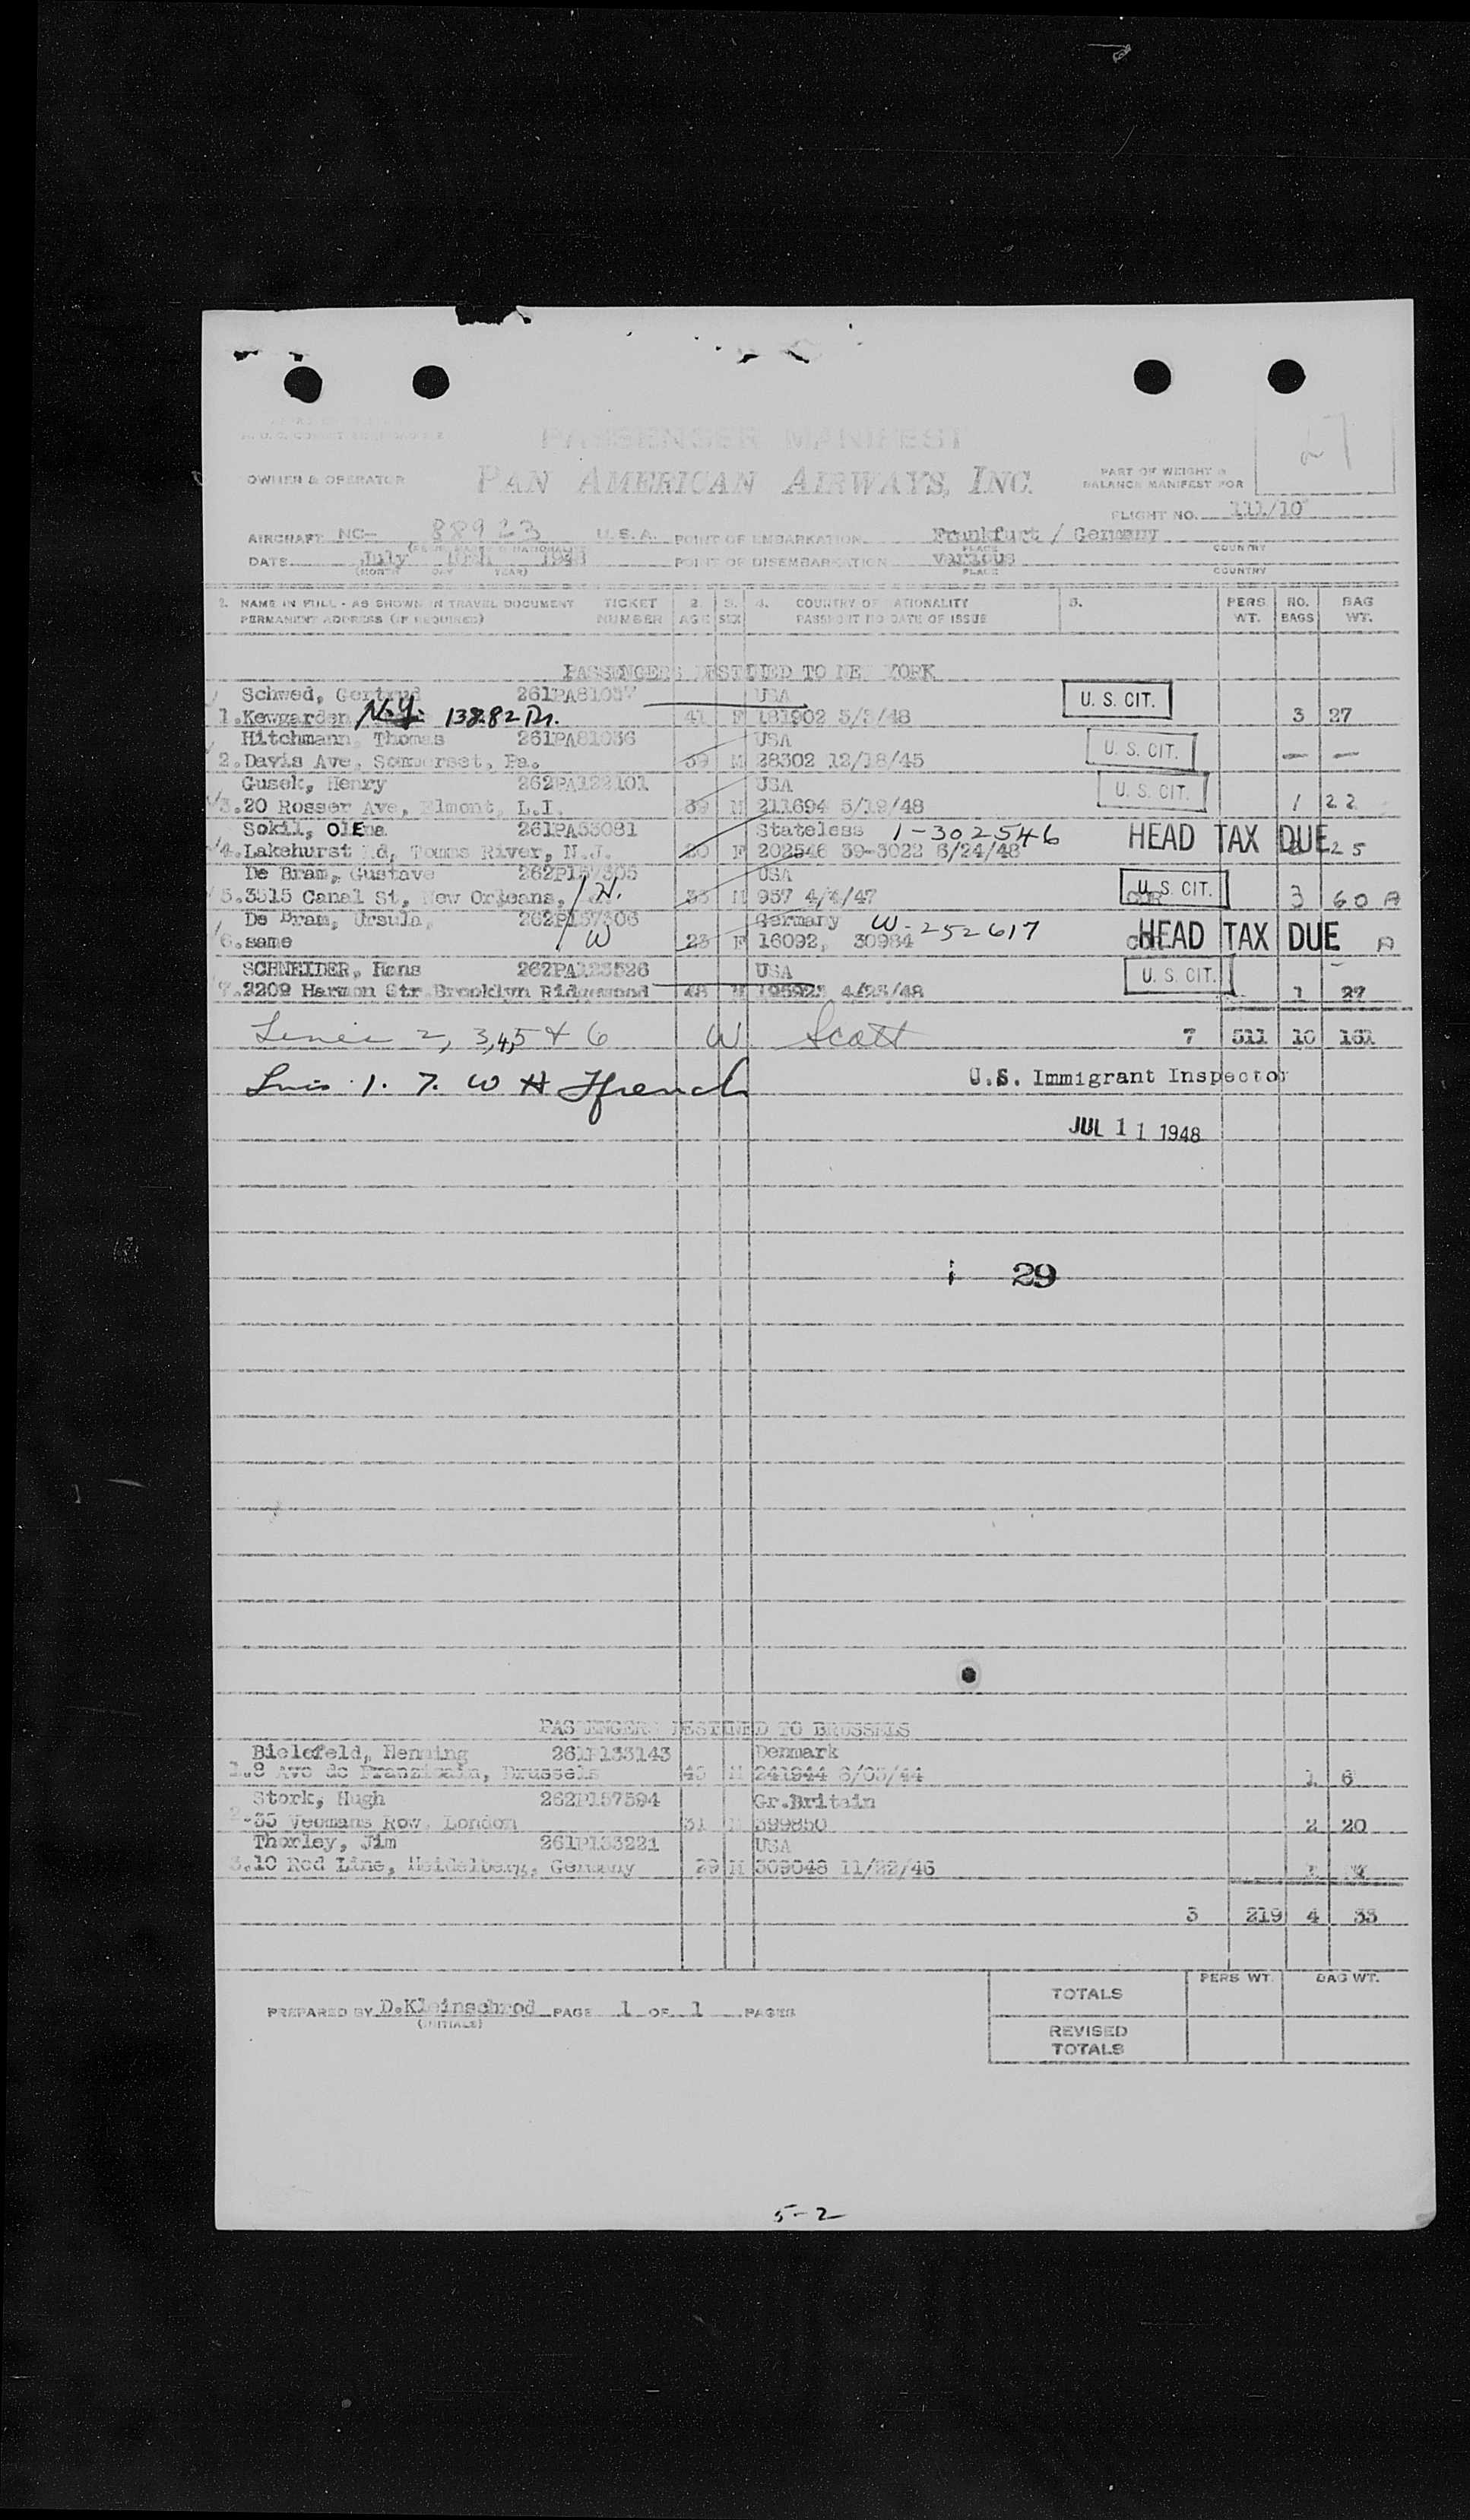 27
PASSENGER MANIFEST
OWNER & OPERATOR PAN AMERICAN AIRWAYS, INC. PART OF WEIGHT &
BALANCE MANIFEST FOR
FLIGHT NO. 111/10
AIRCRAFT NC- 88923 U.S.A. POINT OF EMBARKATION Frankfurt / Germany
PLACE COUNTRY
DATE July 1948 POINT OF DISEMBARKATION various
(MONTH DAY YEAR) PLACE COUNTRY
1. NAME IN FULL - AS SHOWN IN TRAVEL DOCUMENT TICKET 2. 3. 4. COUNTRY OF NATIONALITY 5. PERS NO. BAG
PERMANENT ADDRESS (IF REQUIRED) NUMBER AGE SEX PASSPORT NO DATE OF ISSUE WT. BAGS WT.
PASSENGERS DESTINED TO NEW YORK
Schwed, Gertrud 261PA81037 USA U. S. CIT.
1. Kewgarden N.Y. 138.82 Dr. 41 F 181902 5/3/48 3 27
Hitchmann Thomas 261PA81036 USA U. S. CIT.
2. Davis Ave, Somerset, Pa. 39 M 28302 12/18/45 — —
Gusek, Henry 262PA122101 USA U. S. CIT.
3. 20 Rosser Ave, Elmont, L.I. 39 M 211694 5/19/48 1 22
Sokil, OlEna 261PA53081 Stateless 1-302546 HEAD TAX DUE
4. Lakehurst Rd, Toums River, N.J. 20 F 202546 39-3022 6/24/48 25
De Bram, Gustave 262P157305 USA U. S. CIT.
5. 3515 Canal St, New Orleans, / H. 33 M 957 4/4/47 3 60 A
De Bram, Ursula, 262P157306 Germany W-252617 HEAD TAX DUE
6. same / W 23 F 16092, 30984 A
SCHNEIDER, Hans 262PA123526 USA U. S. CIT.
7. 2209 Harmon Str Brooklyn Ridgewood 48 M 195925 4/23/48 1 27
Lines 2, 3,4,5 & 6 W. Scott 7 511 10 161
Lines 1. 7. W H Ffrench U.S. Immigrant Inspector
JUL 11 1948
29
PASSENGERS DESTINED TO BRUSSELS
Bielefeld, Henning 261P133143 Denmark
1. 8 Ave de Brussels 43 M 241944 6/03/44 1 6
Stork, Hugh 262P157594 Gr.Britain
2. 35 Yeomans Row, London 31 M 399850 2 20
Thorley, Jim 261P133221 USA
3. 10 Rod Line, Heidelberg, Germany 29 M 309048 11/22/46
3 219 4 33
PERS WT. BAG WT.
TOTALS
PREPARED BY D.Kleinschrod PAGE 1 OF 1 PAGES
(INITIALS)
REVISED
TOTALS
5-2